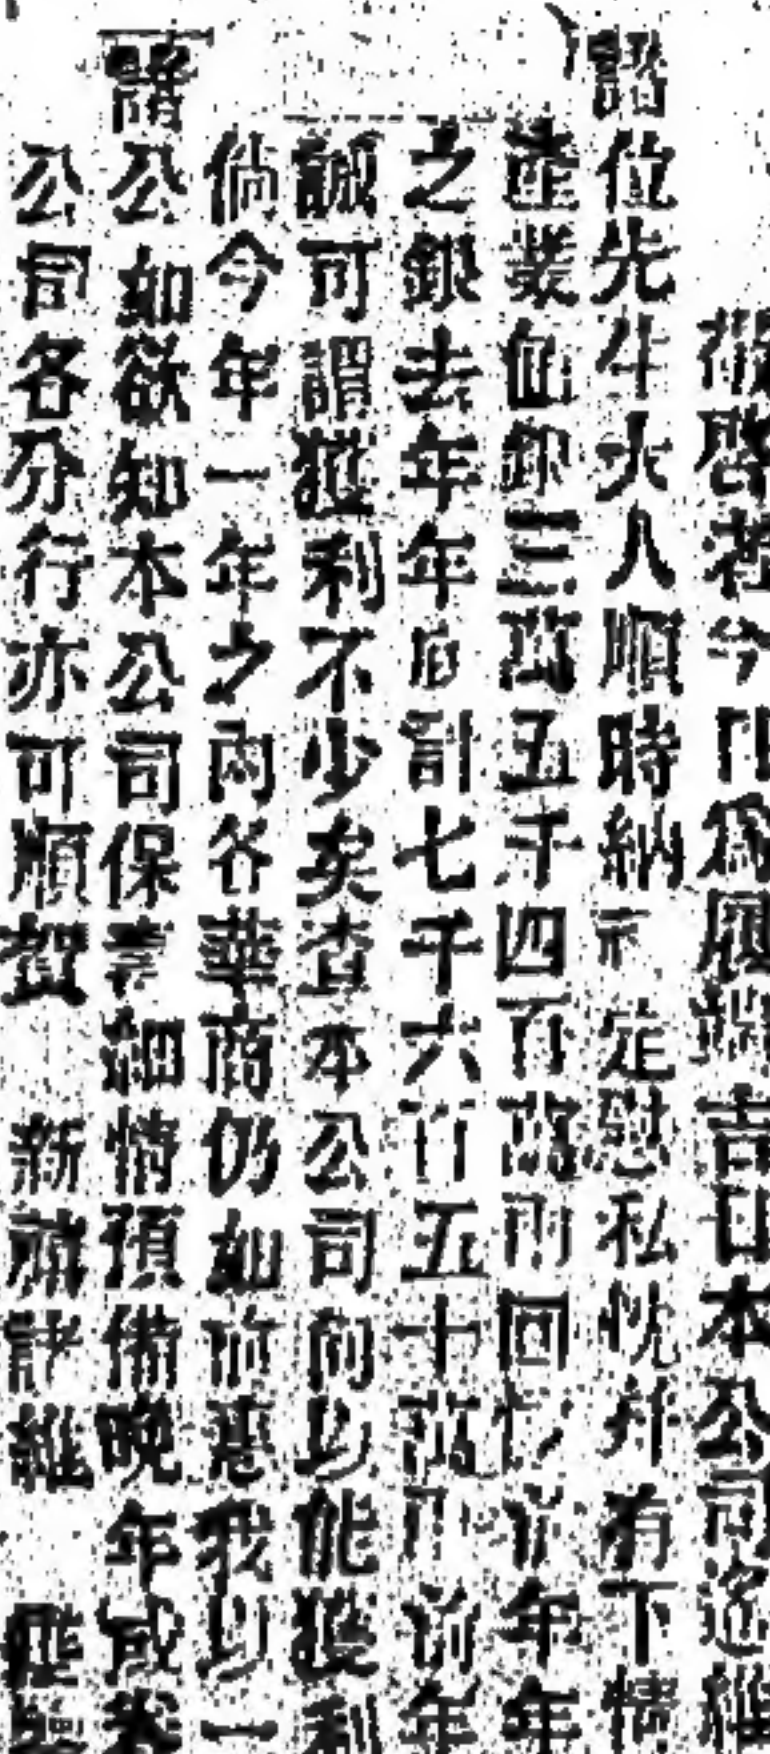 敬啓者今日爲履端吉日本公司遙維
諸位先生大人順時納定慰私忱并有下情
產業值銀三萬五千四百萬兩回憶前年年
之銀去年年底計七千六百五十萬前年
誠可謂獲利不少矣查本公司向以能獲利
倘今年一年之內各華商仍如前惠我以一
諸公如欲知本公司保壽細情預備晚年或
公司各分行亦可順賀 新禧 維